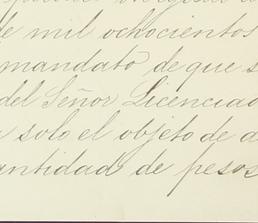 de mil ochocientos
mandato de que s
del Señor Licenciado
solo el objeto de d
antidad de pesos